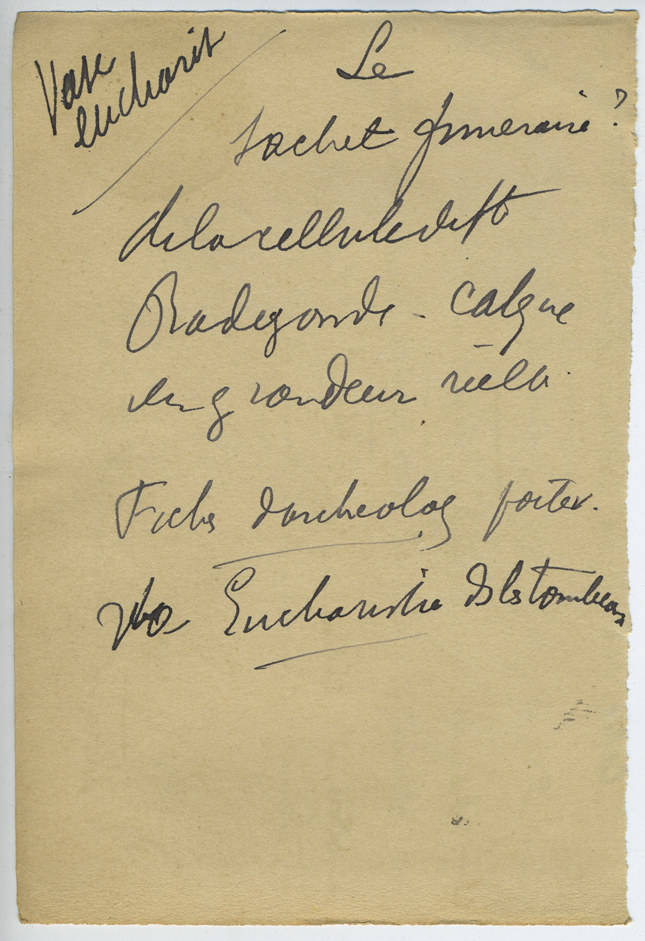 Vase
eucharist
Le
sachet funeraire ?
de la cellule de Ste
Radegonde - calque
en grandeur réelle
Fiche d'archeolog
Vbo Eucharistie ds les tombeaux